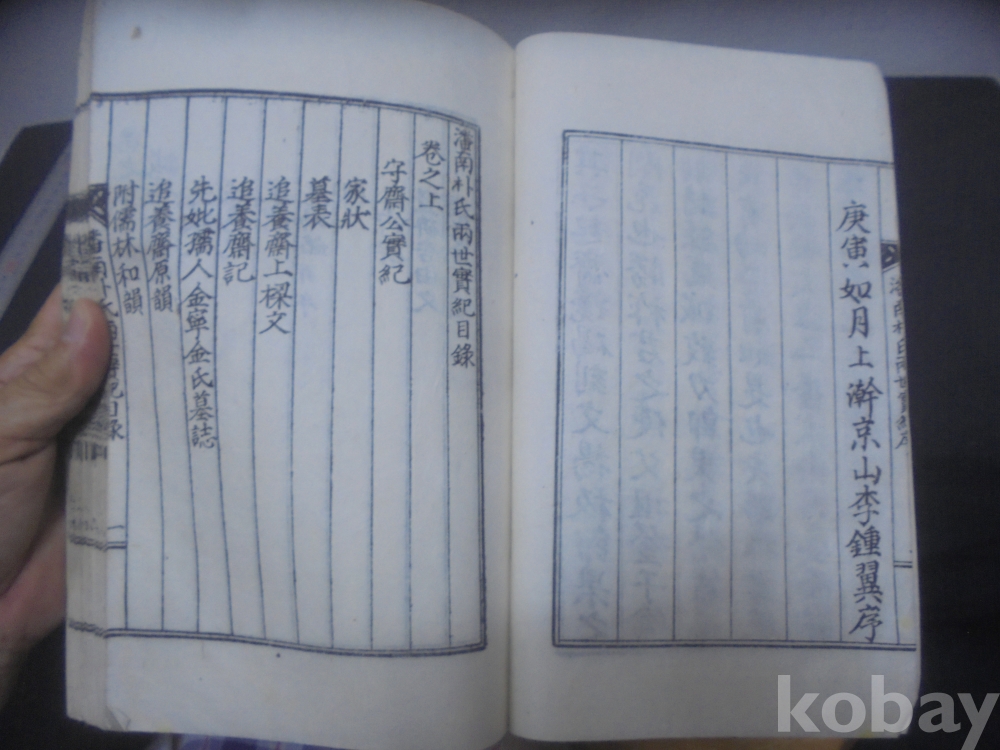 庚寅如月上澣京山李鍾翼序
潘南朴氏兩世實紀序
潘南朴氏兩世實紀目錄
卷之上
守齋公實紀
家狀
墓表
追養齋上樑文
追養齋記
先妣孺人金寧金氏墓誌
追養齋原韻
附儒林和韻
潘南朴氏兩世實紀目錄
一
kobay